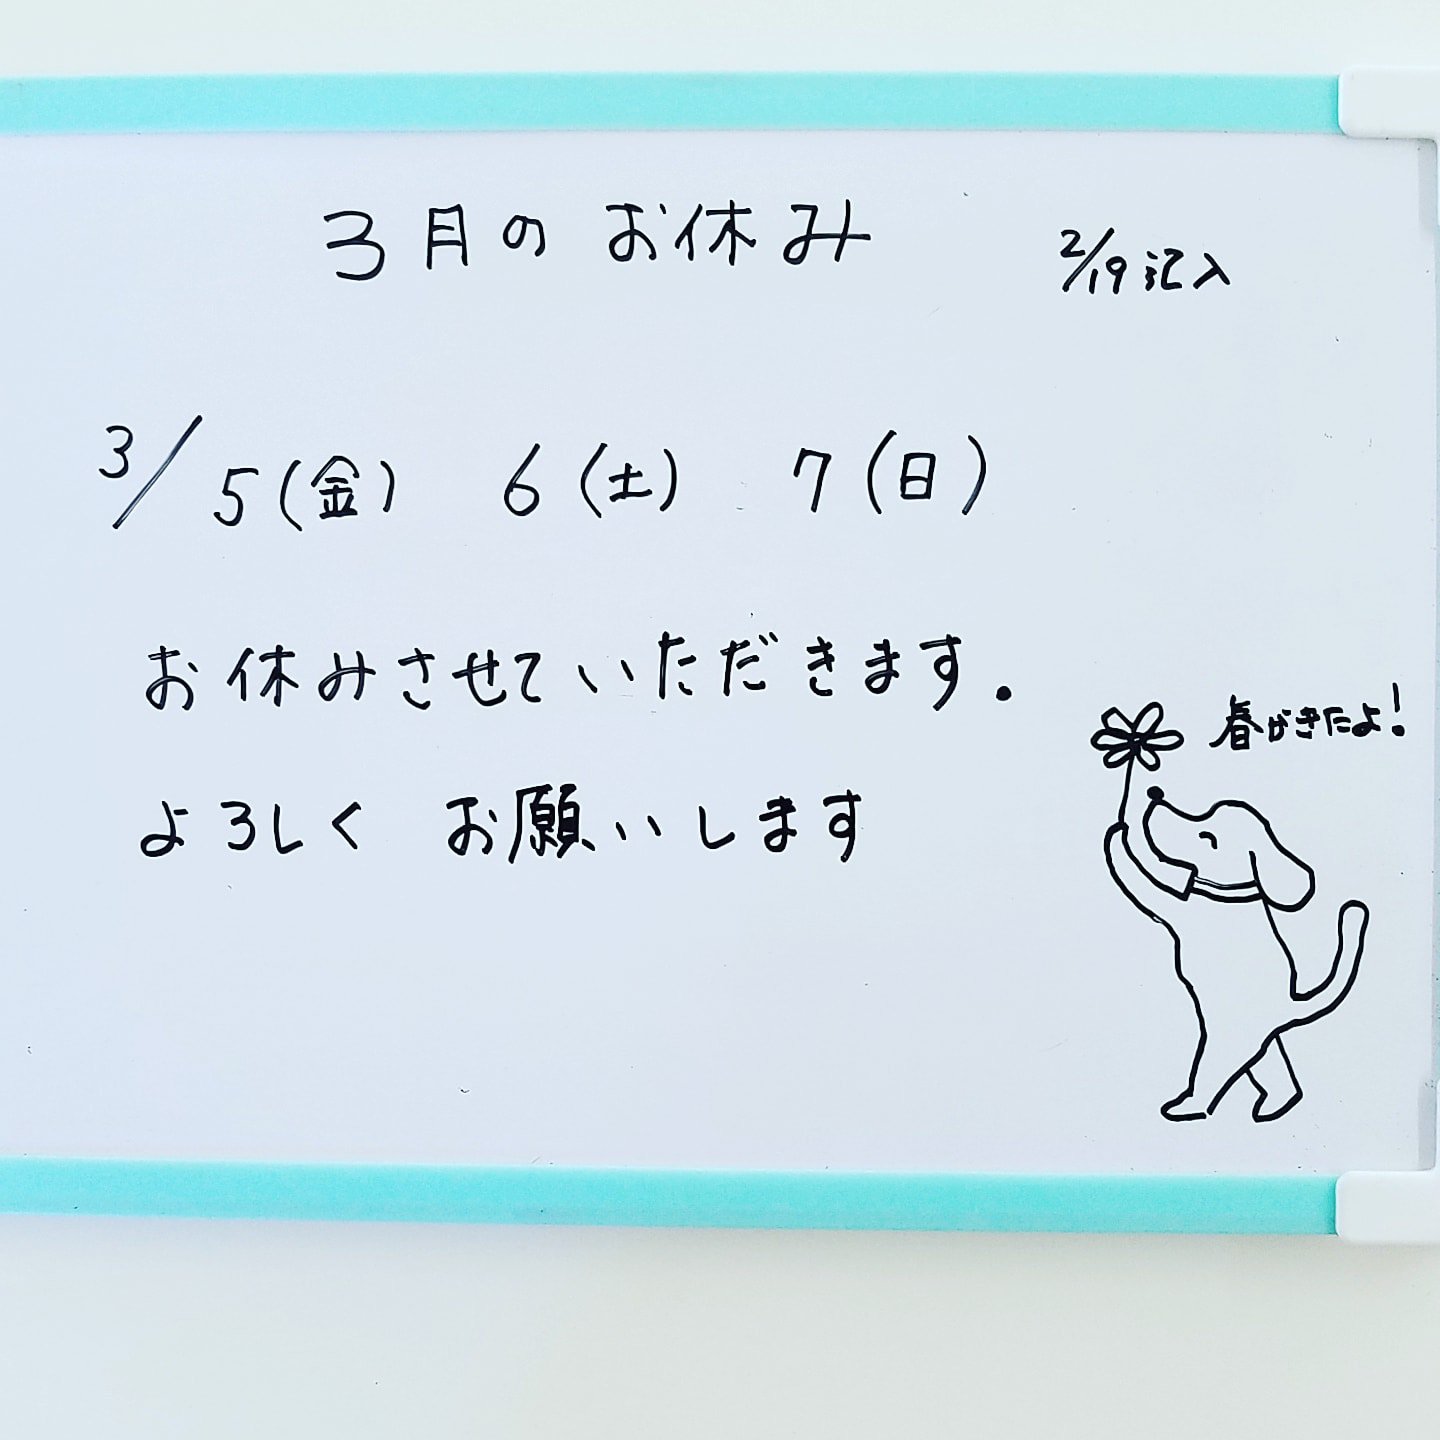 3月のお休み
2/19記入
3/5(金) 6(土) 7(日)
お休みさせていただきます.
春がきたよ!
よろしくお願いします